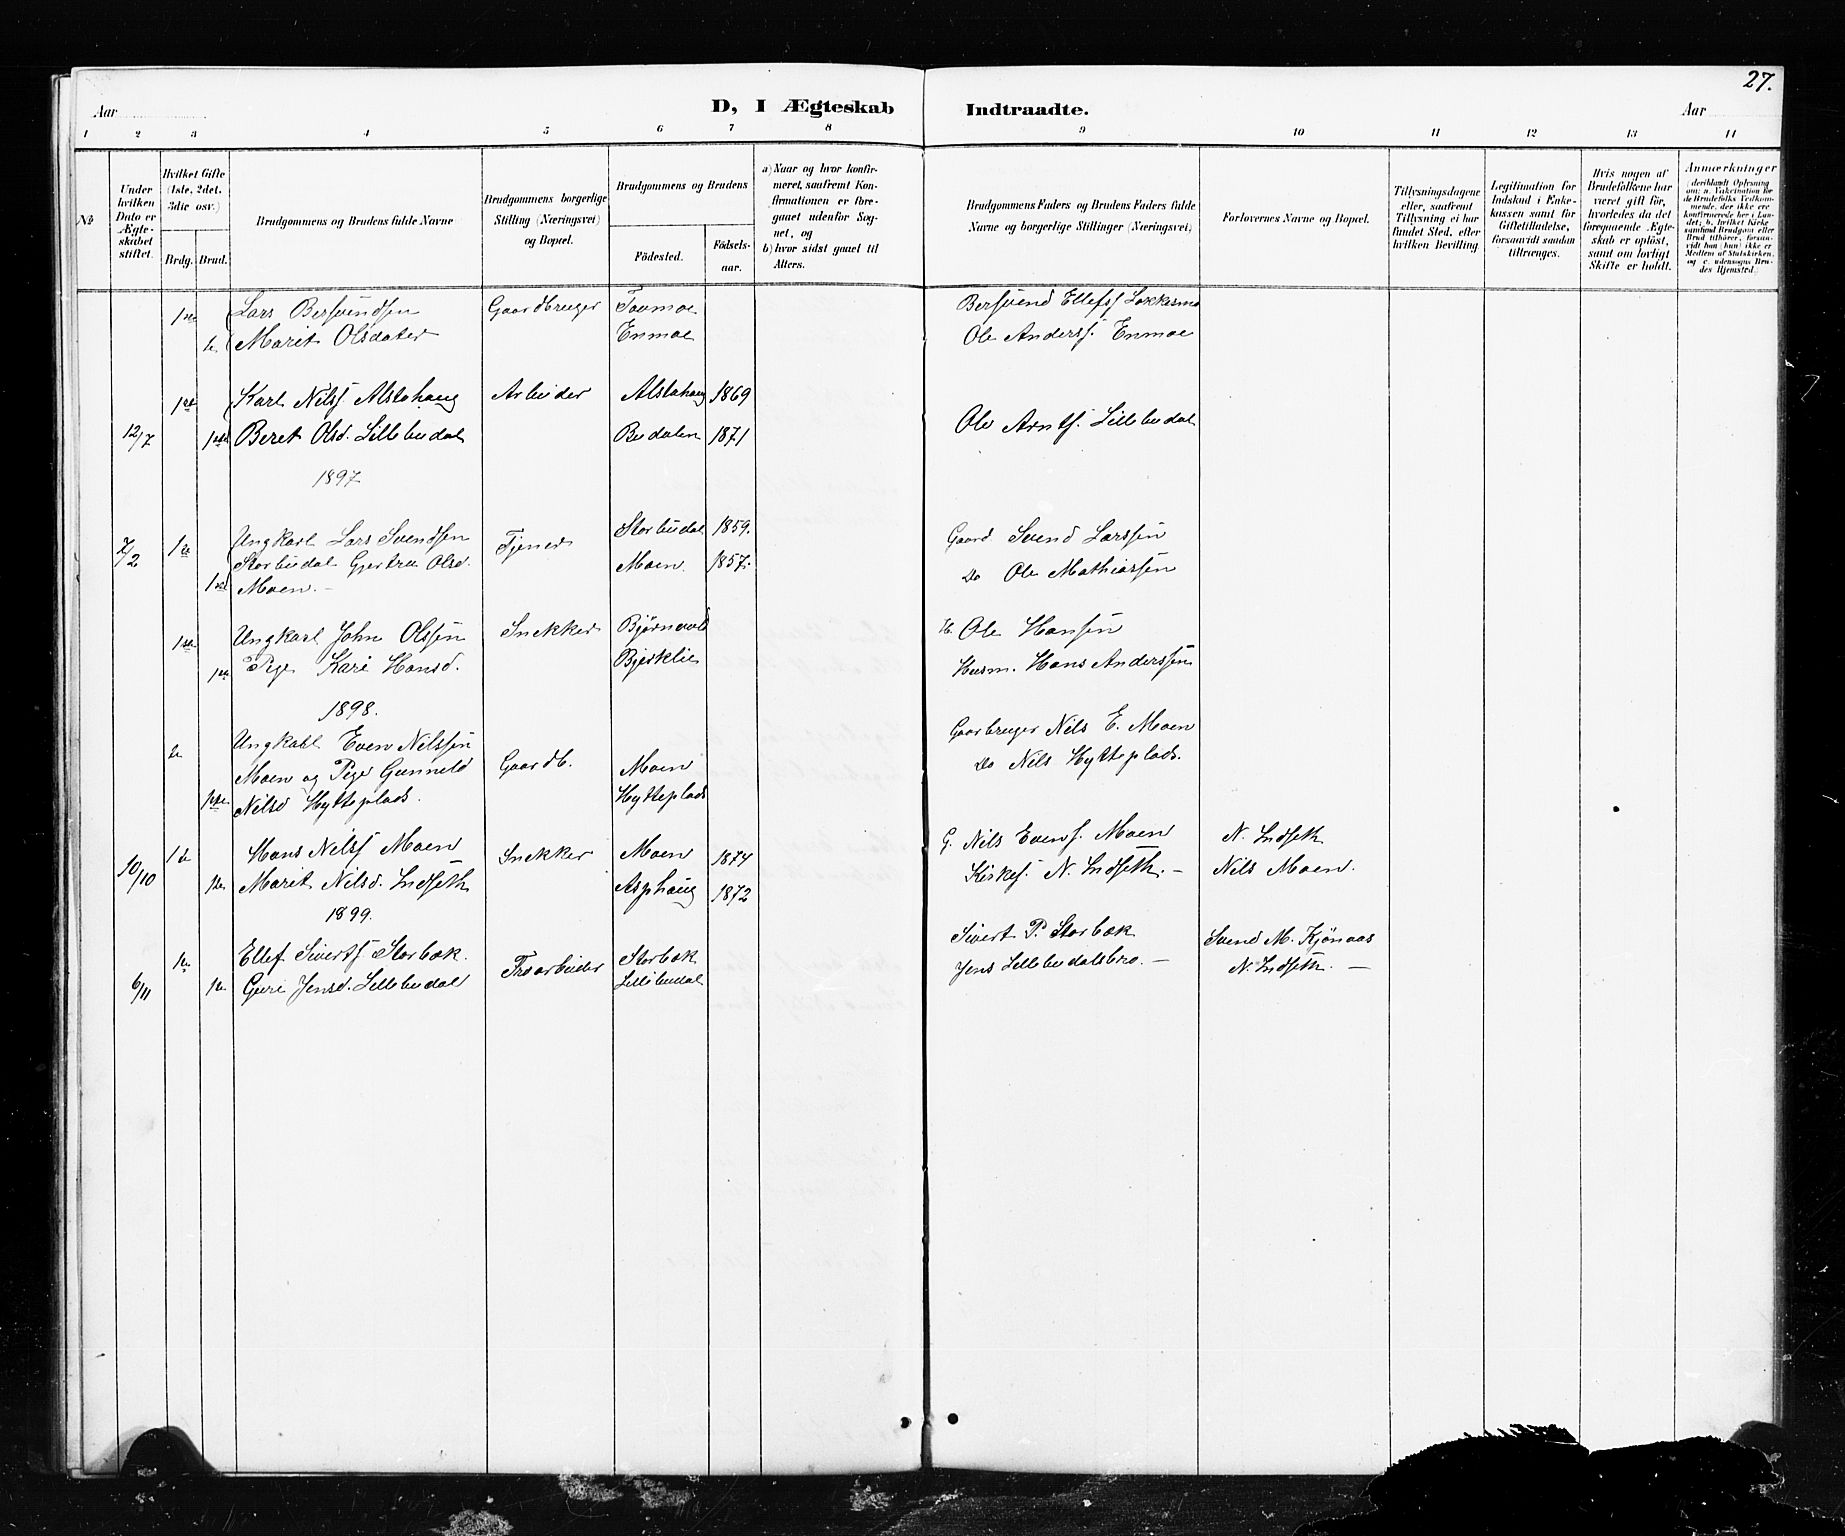 27.
Aar
D, I Ægteskab Indtraadte.
Aar
1 2 3 4 5 6 7 8 9 10 11 12 13 14
No
Under hvilken Dato er Ægteskabet stiftet.
Hvilket Gifte (1ste, 2det, 3die osv.)
Brdg. Brud.
Brudgommens og Brudens fulde Navne
Brudgommens borgerlige Stilling (Næringsvei) og Bopæl.
Brudgommens og Brudens
Födested. Födsels-aar.
a) Naar og hvor konfirmeret, saafremt Konfirmationen er foregaaet udenfor Sognet, og
b) hvor sidst gaaet til Alters.
Brudgommens Faders og Brudens Faders fulde Navne og borgerlige Stillinger (Næringsvei)
Forlovernes Navne og Bopæl.
Tillysningsdagene eller, saafremt Tillysning ei har fundet Sted, efter hvilken Bevilling.
Legitimation for Indskud i Enkekassen samt for Giftetilladelse, forsaavidt saadan tiltrænges.
Hvis nogen af Brudefolkene har været gift för, hvorledes da det foregaaende Ægteskab er oplöst, samt om lovligt Skifte er holdt.
Anmærkninger
(deriblandt Oplysning om: a. Vakcination for de Brudefolks Vedkommende, der ikke ere konfirmerede her i Landet; b. hvilket Kirkesamfund Brudgom eller Brud tilhörer, forsaavidt han (hun) ikke er Medlem af Statskirken, og c. udensogns Brudes Hjemsted.)
1ste Lars Bersvendsen Gaardbruger Toomoe Bersvend Ellefss Løkkesmo
1e Marit Olsdater Enmoe Ole Anderss. Enmoe
1ste Karl Nilss Alstahaug Arbeider Alstahaug 1869
12/7 1ste Beret Olsd. Lillebudal Budalen 1871 Ole Arnts. Lillebudal
1897
7/2 1e Ungkarl Lars Svendsen Tjener Storbudal 1859. Gaard Svend Larssen
Storbudal Gjertru Olsd. Moen. 1857. Do Ole Mathiassen
1ste Moen. -
1ste Ungkarl John Olssen Snekker Bjørnvold H. Ole Hansen
1ste Pige Kari Hansd. Bjerklie Husm. Hans Anderssen
1898.
1e Ungkarl Even Nilssen Gaardb. Moen Gaarbruger Nils E. Moen
Moen og Pige Gunneld Hytteplads Do Nils Hytteplads.
1ste Nilsd Hytteplads.
1e Hans Nilss Moen Snekker Moen 1874 G. Nils Evens. Moen N. Indseth
10/10 1e Marit Nilsd. Indseth Asphaug 1872 Kirkes. N. Indseth. - Nils Moen.
1899.
1e Ellef Sivertss Storbæk Storbæk Sivert P. Storbæk Svend M. Kjønaas
6/11 1e Guri Jensd. Lillebudal Lillebudal Jens Lillebudalsbro. - N. Indseth. -